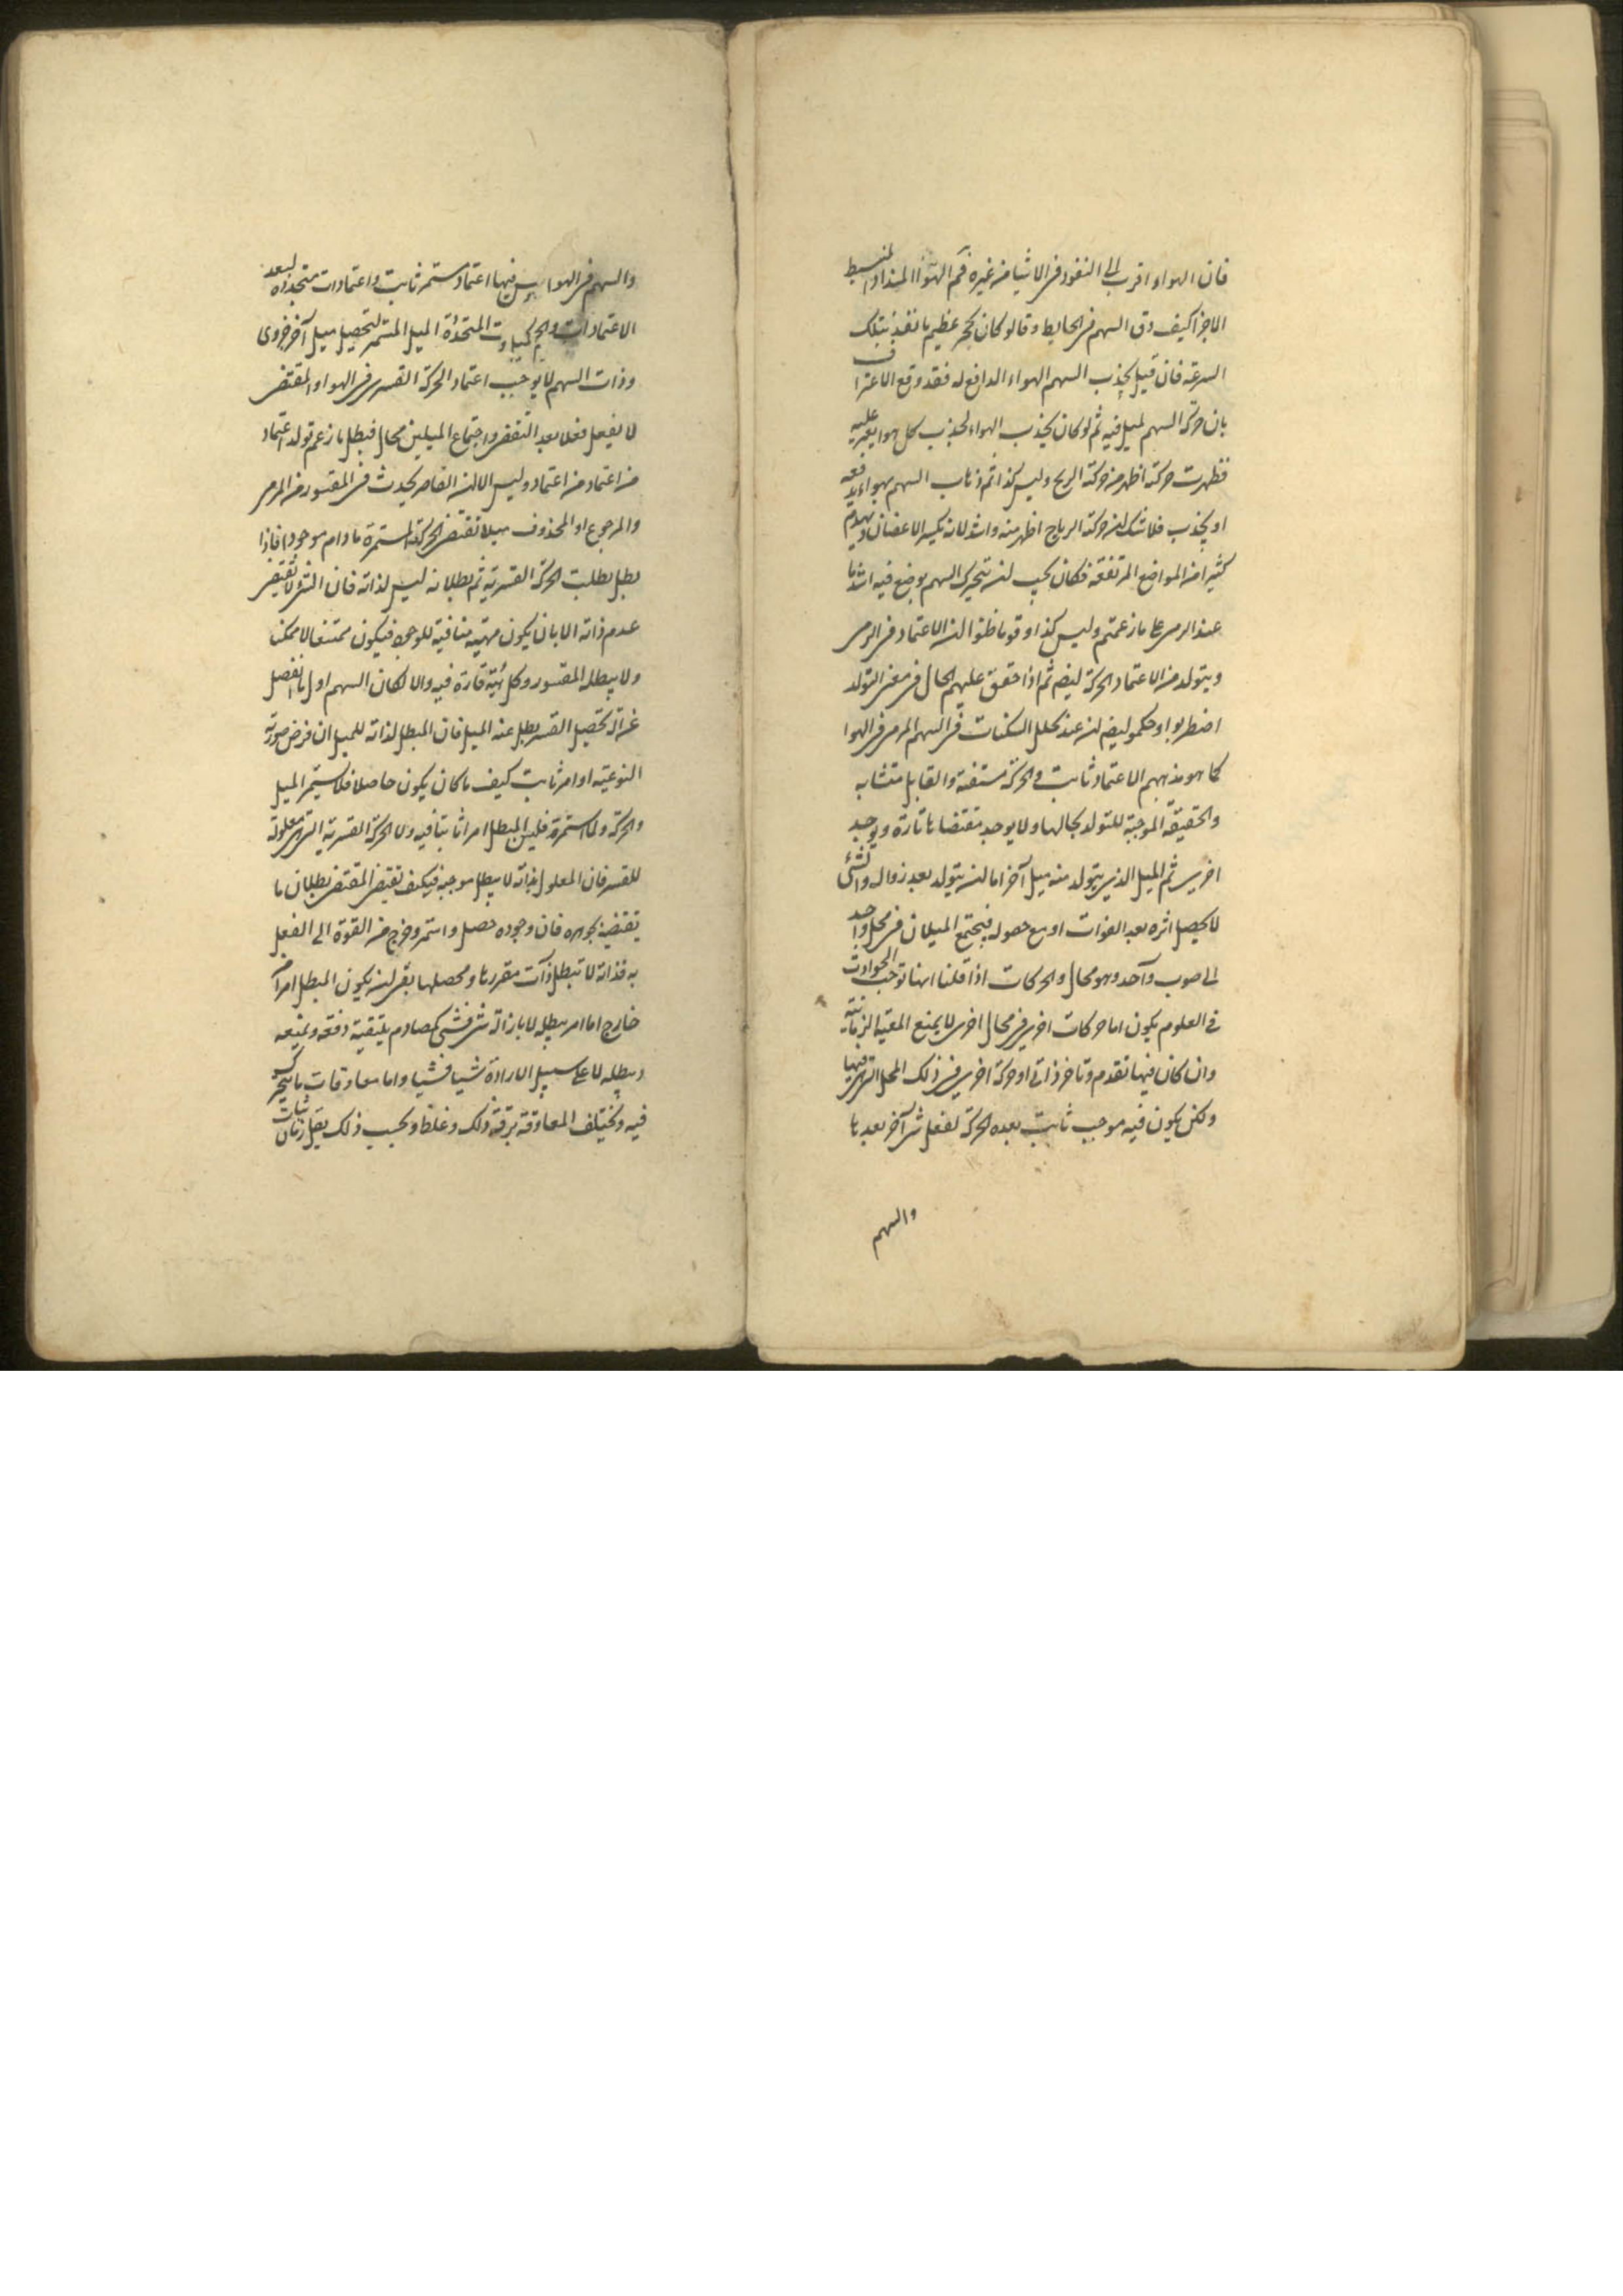 فان الهواء اقرب الى النفوذ فى الاشيا من غيره فكم الهوا المنبسط
الاجزا كيف دق السهم فى الحايط وقالو كان كحجر عظيم ما نفذ بتلك
السرعة فان قيل يجذب السهم الهواء الدافع له فقد وقع الاعتراف
بان حركة السهم لميل فيه ثم لو كان يجذب الهواء لجذب كل هوا يعبر عليه
فظهرت حركته اظهر من حركة الريح وليس كذا ثم ذهاب السهم بهواء يدفعه
او يجذب فلا شك ان حركة الرياح اظهر منه واشد لانه يكسر الاغصان ويهدم
كثيرا من المواضع المرتفعة فكان يجب ان يتحرك السهم بوضع فيه اشد ما
عند الرمى على ما زعمتم وليس كذا وقوما ظنوا ان الاعتماد فى الرمى
ويتولد من الاعتماد الحركة ايضا ثم اذا حقق عليهم الحال فى معنى التولد
اضطربوا وحكموا ايضا ان عند تخلل السكنات فى السهم المرمى فى الهوا
كما هو مذهبهم الاعتماد ثابت والحركة منتفية والقابل متشابه
والحقيقة الموجبة للتولد بحالها ولا يوجد مقتضاها تارة ويوجد
اخرى ثم الميل الذى يتولد منه ميل آخر اما ان يتولد بعد زواله والشئ
لا يحصل اثره بعد الفوات او مع حصوله فيجتمع الميلان فى محل واحد
الى صوب واحد وهو محال والحركات اذا قلنا انها توجب الحوادث
فى العلوم يكون اما حركات اخرى فى محال اخرى لا يمنع المعية الزمانية
وان كان فيها تقدم وتاخر ذاتى او حركة اخرى فى ذلك المحل التى فيها
ولكن يكون فيه موجب ثابت بعده الحركة لفعل شئ آخر بعدها
والسهم
والسهم فى الهوا ليس فيها اعتماد مستمر ثابت واعتمادات متجددة لبعد
الاعتمادات المتجددة الميل المستمر لتحصيل ميل آخر جزوى
وذات السهم لا يوجب اعتماد الحركة القسرى فى الهوا والمقتضى
لا يفعل فعلا بعد التقضى واجتماع الميلين محال فبطل ما زعم تولد اعتماد
من اعتماد من اعتماد وليس الا ان القاسر يحدث فى المقسور من المرمى
والمرجوع او المحذوف ميلا تقتضى الحركة المستمرة ما دام موجودا فاذا
بطل بطلت الحركة القسرية ثم بطلانه ليس لذاته فان الشئ لا يقتضى
عدم ذاته الا بان يكون مهيته منافية للوجود فيكون ممتنعا لا ممكنا
ولا يبطله المقسور وكل هيئة قارة فيه والا لكان السهم اول ما انفصل
عن آلة تحصيل القسر بطل عنه الميل فان المبطل لذاته للميل ان فرض صورته
النوعية او امر ثابت كيف ما كان يكون حاصلا فلا يستمر الميل
والحركة ولما استمر فليس المبطل امرا ثابتا فيه ولا الحركة القسرية التى هى معلولة
للقسر فان المعلول بذاته لا يبطل موجبه فكيف تقتضى المقتضى بطلان ما
تقتضيه بجوهره فان وجوده حصل واستمر وخرج من القوة الى الفعل
به فذاته لا تبطل ذات مقررها ومحصلها بقى ان يكون المبطل امرا
خارج اما امر يبطله لا بازالة شئ فشئ كمصادم يلتقيه دفعة ويمنعه
ويبطله لا على سبيل الارادة شيا فشيا واما معاوقات ما يتحرك
فيه ويختلف المعاوقة برقة ذلك وغلظ وبحسب ذلك يقل زمان ثبات